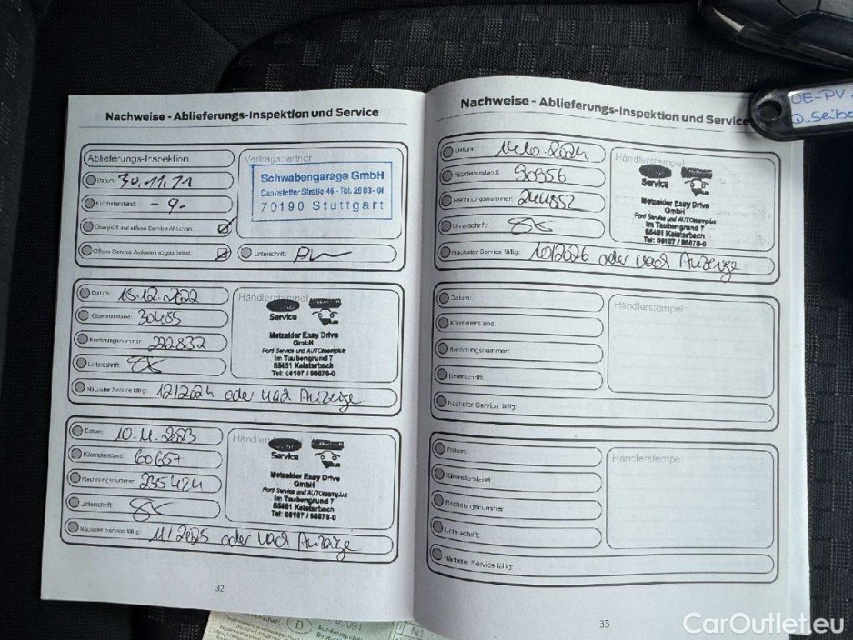 Nachweise - Ablieferungs-Inspektion und Service
Ablieferungs-Inspektion
Datum: 30.11.21
Kilometerstand: - 9 -
Unterschrift:
Vertragspartner
Schwabengarage GmbH
Cannstatter Straße 46 - Tel.
70190 Stuttgart
Datum: 15.12.2022
Kilometerstand: 30455
Rechnungsnummer: 222832
Unterschrift:
Nächster Service fällig: 12/2024 oder nach Anzeige
Händlerstempel
Service
Metzelder Easy Drive
GmbH
Ford Service und AUTOteamplus
Im Taubengrund 7
65451 Kelsterbach
Tel: 06107 / 98878-0
Datum: 10.11.2023
Kilometerstand: 60657
Rechnungsnummer: 235424
Unterschrift:
Nächster Service fällig: 11/2025 oder nach Anzeige
Service
Metzelder Easy Drive
GmbH
Ford Service und AUTOteamplus
Im Taubengrund 7
65451 Kelsterbach
Tel: 06107 / 98878-0
32
Nachweise - Ablieferungs-Inspektion und Service
Datum: 14.10.2024
Kilometerstand: 90356
Rechnungsnummer: 244852
Unterschrift:
Nächster Service fällig: 10/2026 oder nach Anzeige
Händlerstempel
Service
Metzelder Easy Drive
GmbH
Ford Service und AUTOteamplus
Im Taubengrund 7
65451 Kelsterbach
Tel: 06107 / 98878-0
Datum:
Kilometerstand:
Rechnungsnummer:
Unterschrift:
Nächster Service fällig:
Händlerstempel
Datum:
Kilometerstand:
Rechnungsnummer:
Unterschrift:
Nächster Service fällig:
Händlerstempel
33
OE-PV
D. Seibe
CarOutlet.eu